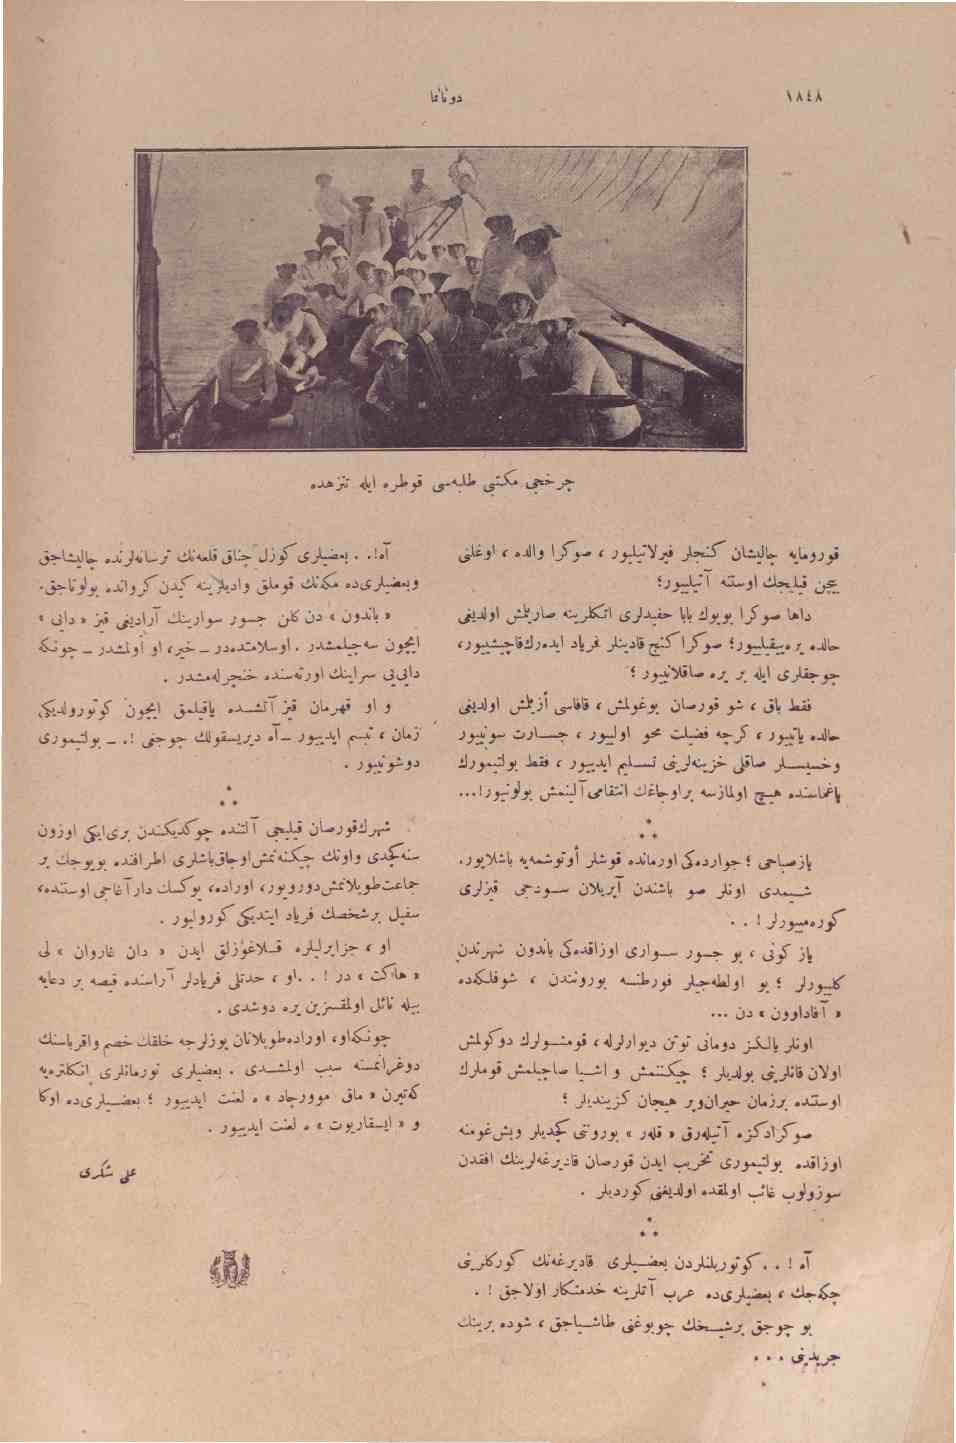 ١٨٤٨
دونانما
چرخجی مکتبی طلبه‌سی قوطره ایله تنزهده
قورومایه چالیشان کنجلر فیرلاتیلیور ، صوکرا والده ، اوغلنی
بیچن قیلیجك اوستنه آتیلییور؛
داها صوکرا بویوك بابا حفیدلری اتکلرینه صارلمش اولدیغی
حالده یره‌ییقیلییور؛ صوکرا کنج قادینلر فریاد ایده‌رك‌قاچیشییور،
چوجقلری ایله بر یره صاقلانییور ؛
فقط باق ، شو قورصان بوغولمش ، قافاسی أزیلمش اولدیغی
حالده یاتییور ، کرچه فضیلت محو اولییور ، جسارت سونییور
وخسیسلر صاقلی خزینه‌لرینی تسلیم ایدییور ، فقط بولتیمورك
یاغماسنده هیچ اولمازسه براوجاغك انتقامی آلینمش بولونیور!...
*
* *
یازصباحی ؛ جوارده‌کی اورمانده قوشلر أوتوشمه‌یه باشلایور.
شیمدی اونلر صو باشندن آیریلان سودجی قیزلری
کوره‌مییورلر ! . .
یاز کونی ، بو جسور سواری اوزاقده‌کی باندون شهرندن
کلییورلر ؛ یو اولطه‌جیلر فورطنسه بوروندن ، شوفلکه‌ده
« آفاداوون » دن ...
اونلر یالکز دومانی توتن دیوارلرله ، قومشولرك دوکولمش
اولان قانلرینی بولدیلر ؛ چیکنمش و اشیا صاچیلمش قوملرك
اوستنده برزمان حیران‌وپر هیجان کزیندیلر ؛
صوکرادکزه آتیله‌رق « قله‌ر » بوروننی کچدیلر وبش‌غومنه
اوزاقده بولتیموری تخریب ایدن قورصان قادیرغه‌لرینك افقدن
سوزولوب غائب اولمقده اولدیغنی کوردیلر .
*
* *
آه ! . . کوتوریلنلردن بعضیلری قادیرغه‌نك کورکلرینی
چکه‌جك ، بعضیلری‌ده عرب آتلرینه خدمتکار اولاجق ! .
بو چوجق برشیخك چوبوغنی طاشیاجق ، شوده برینك
جریدینی ...
آه!. . بعضیلری کوزل چناق قلعه‌نك ترسانه‌لرنده چالیشاجق
وبعضیلری‌ده مکه‌نك قوملق وادیلرینه کیدن کرواندە بولوناجق.
« باندون » دن کلن جسور سوارینك آرادیغی قیز « دایی »
ایچون سه‌چیلمشدر . اوسلامتده‌در ــ خیر، او اولمشدر ــ چونکه
دایی‌یی سراینك اورته‌سنده خنجرله‌مشدر .
و او قهرمان قیز آتشده یاقیلمق ایچون کوتورولدیکی
زمان ، تبسم ایدییور ــ آه دیریسقولك چوجنی !. ــ بولتیموری
دوشونییور .
*
* *
شهرك‌قورصان قیلیجی آلتنده چوکدیکندن بری‌ایکی اوزون
سنه‌کچدی واونك چیکنه‌نمش‌اوجاق‌باشلری اطرافنده بویوجك بر
جماعت‌طوپلانمش‌دورویور، اوراده، یوکسك دارآغاجی اوستنده،
سفیل برشخصك فریاد ایتدیکی کورولیور .
او ، جزایرلیلره قلاغوزلق ایدن « دان غاروان » لی
« هاکت » در ! . .او ، حدتلی فریادلر آراسنده قیصه بر دعایه
بیله نائل اولمقسزین یره دوشدی .
چونکه‌او، اوراده‌طوپلانان یوزلرجه خلقك خصم واقرباسنك
دوغرانمسنه سبب اولمشدی . بعضیلری نورمانلری انکلتره‌یه
که‌تیرن « ماق موورجاد » ه لعنت ایدییور ؛ بعضیلری‌ده اوکا
و « ایسقاریوت » ه لعنت ایدییور .
علی شکری